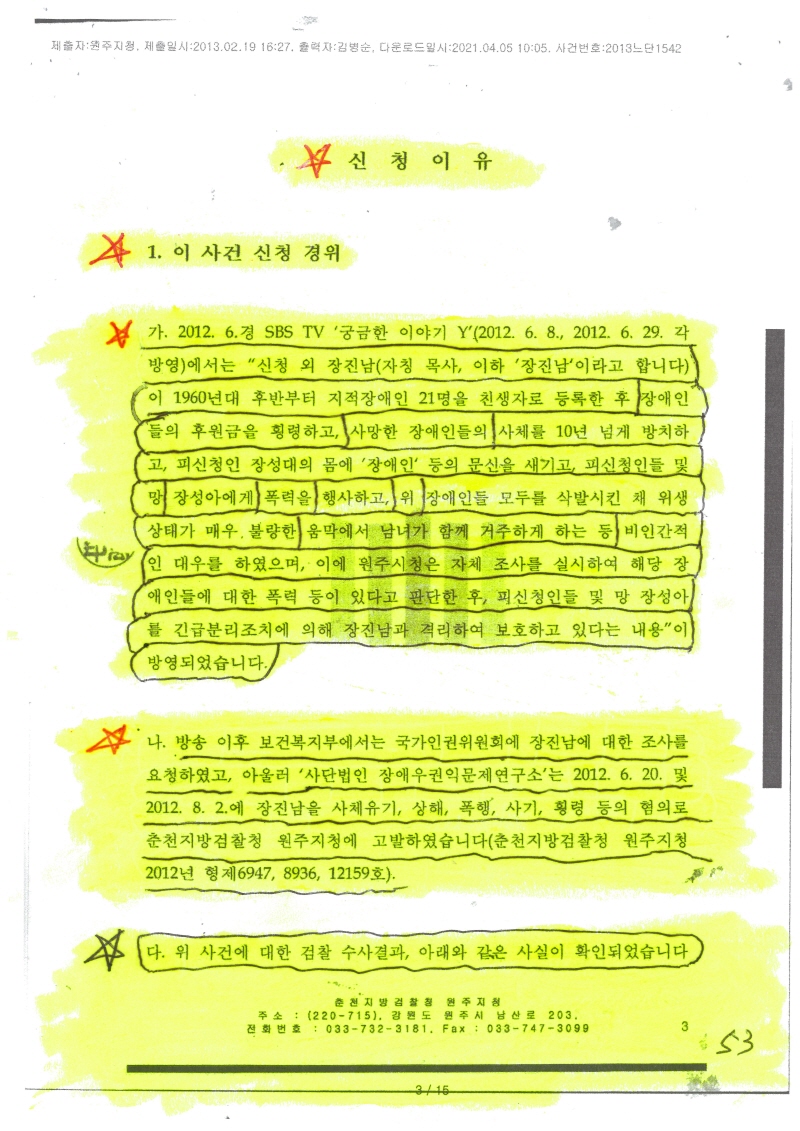 제출자:원주지청, 제출일시:2013.02.19 16:27, 출력자:김병순, 다운로드일시:2021.04.05 10:05, 사건번호:2013느단1542
신 청 이 유
1. 이 사건 신청 경위
가. 2012. 6.경 SBS TV '궁금한 이야기 Y'(2012. 6. 8., 2012. 6. 29. 각
방영)에서는 "신청 외 장진남(자칭 목사, 이하 '장진남'이라고 합니다)
이 1960년대 후반부터 지적장애인 21명을 친생자로 등록한 후 장애인
들의 후원금을 횡령하고, 사망한 장애인들의 사체를 10년 넘게 방치하
고, 피신청인 장성대의 몸에 '장애인' 등의 문신을 새기고, 피신청인들 및
망 장성아에게 폭력을 행사하고, 위 장애인들 모두를 삭발시킨 채 위생
상태가 매우 불량한 움막에서 남녀가 함께 거주하게 하는 등 비인간적
인 대우를 하였으며, 이에 원주시청은 자체 조사를 실시하여 해당 장
애인들에 대한 폭력 등이 있다고 판단한 후, 피신청인들 및 망 장성아
를 긴급분리조치에 의해 장진남과 격리하여 보호하고 있다는 내용"이
방영되었습니다.
나. 방송 이후 보건복지부에서는 국가인권위원회에 장진남에 대한 조사를
요청하였고, 아울러 '사단법인 장애우권익문제연구소'는 2012. 6. 20. 및
2012. 8. 2.에 장진남을 사체유기, 상해, 폭행, 사기, 횡령 등의 혐의로
춘천지방검찰청 원주지청에 고발하였습니다(춘천지방검찰청 원주지청
2012년 형제6947, 8936, 12159호).
다. 위 사건에 대한 검찰 수사결과, 아래와 같은 사실이 확인되었습니다
춘천지방검찰청 원주지청
주소 : (220-715), 강원도 원주시 남산로 203,
전화번호 : 033-732-3181, Fax : 033-747-3099
3
53
3 / 15